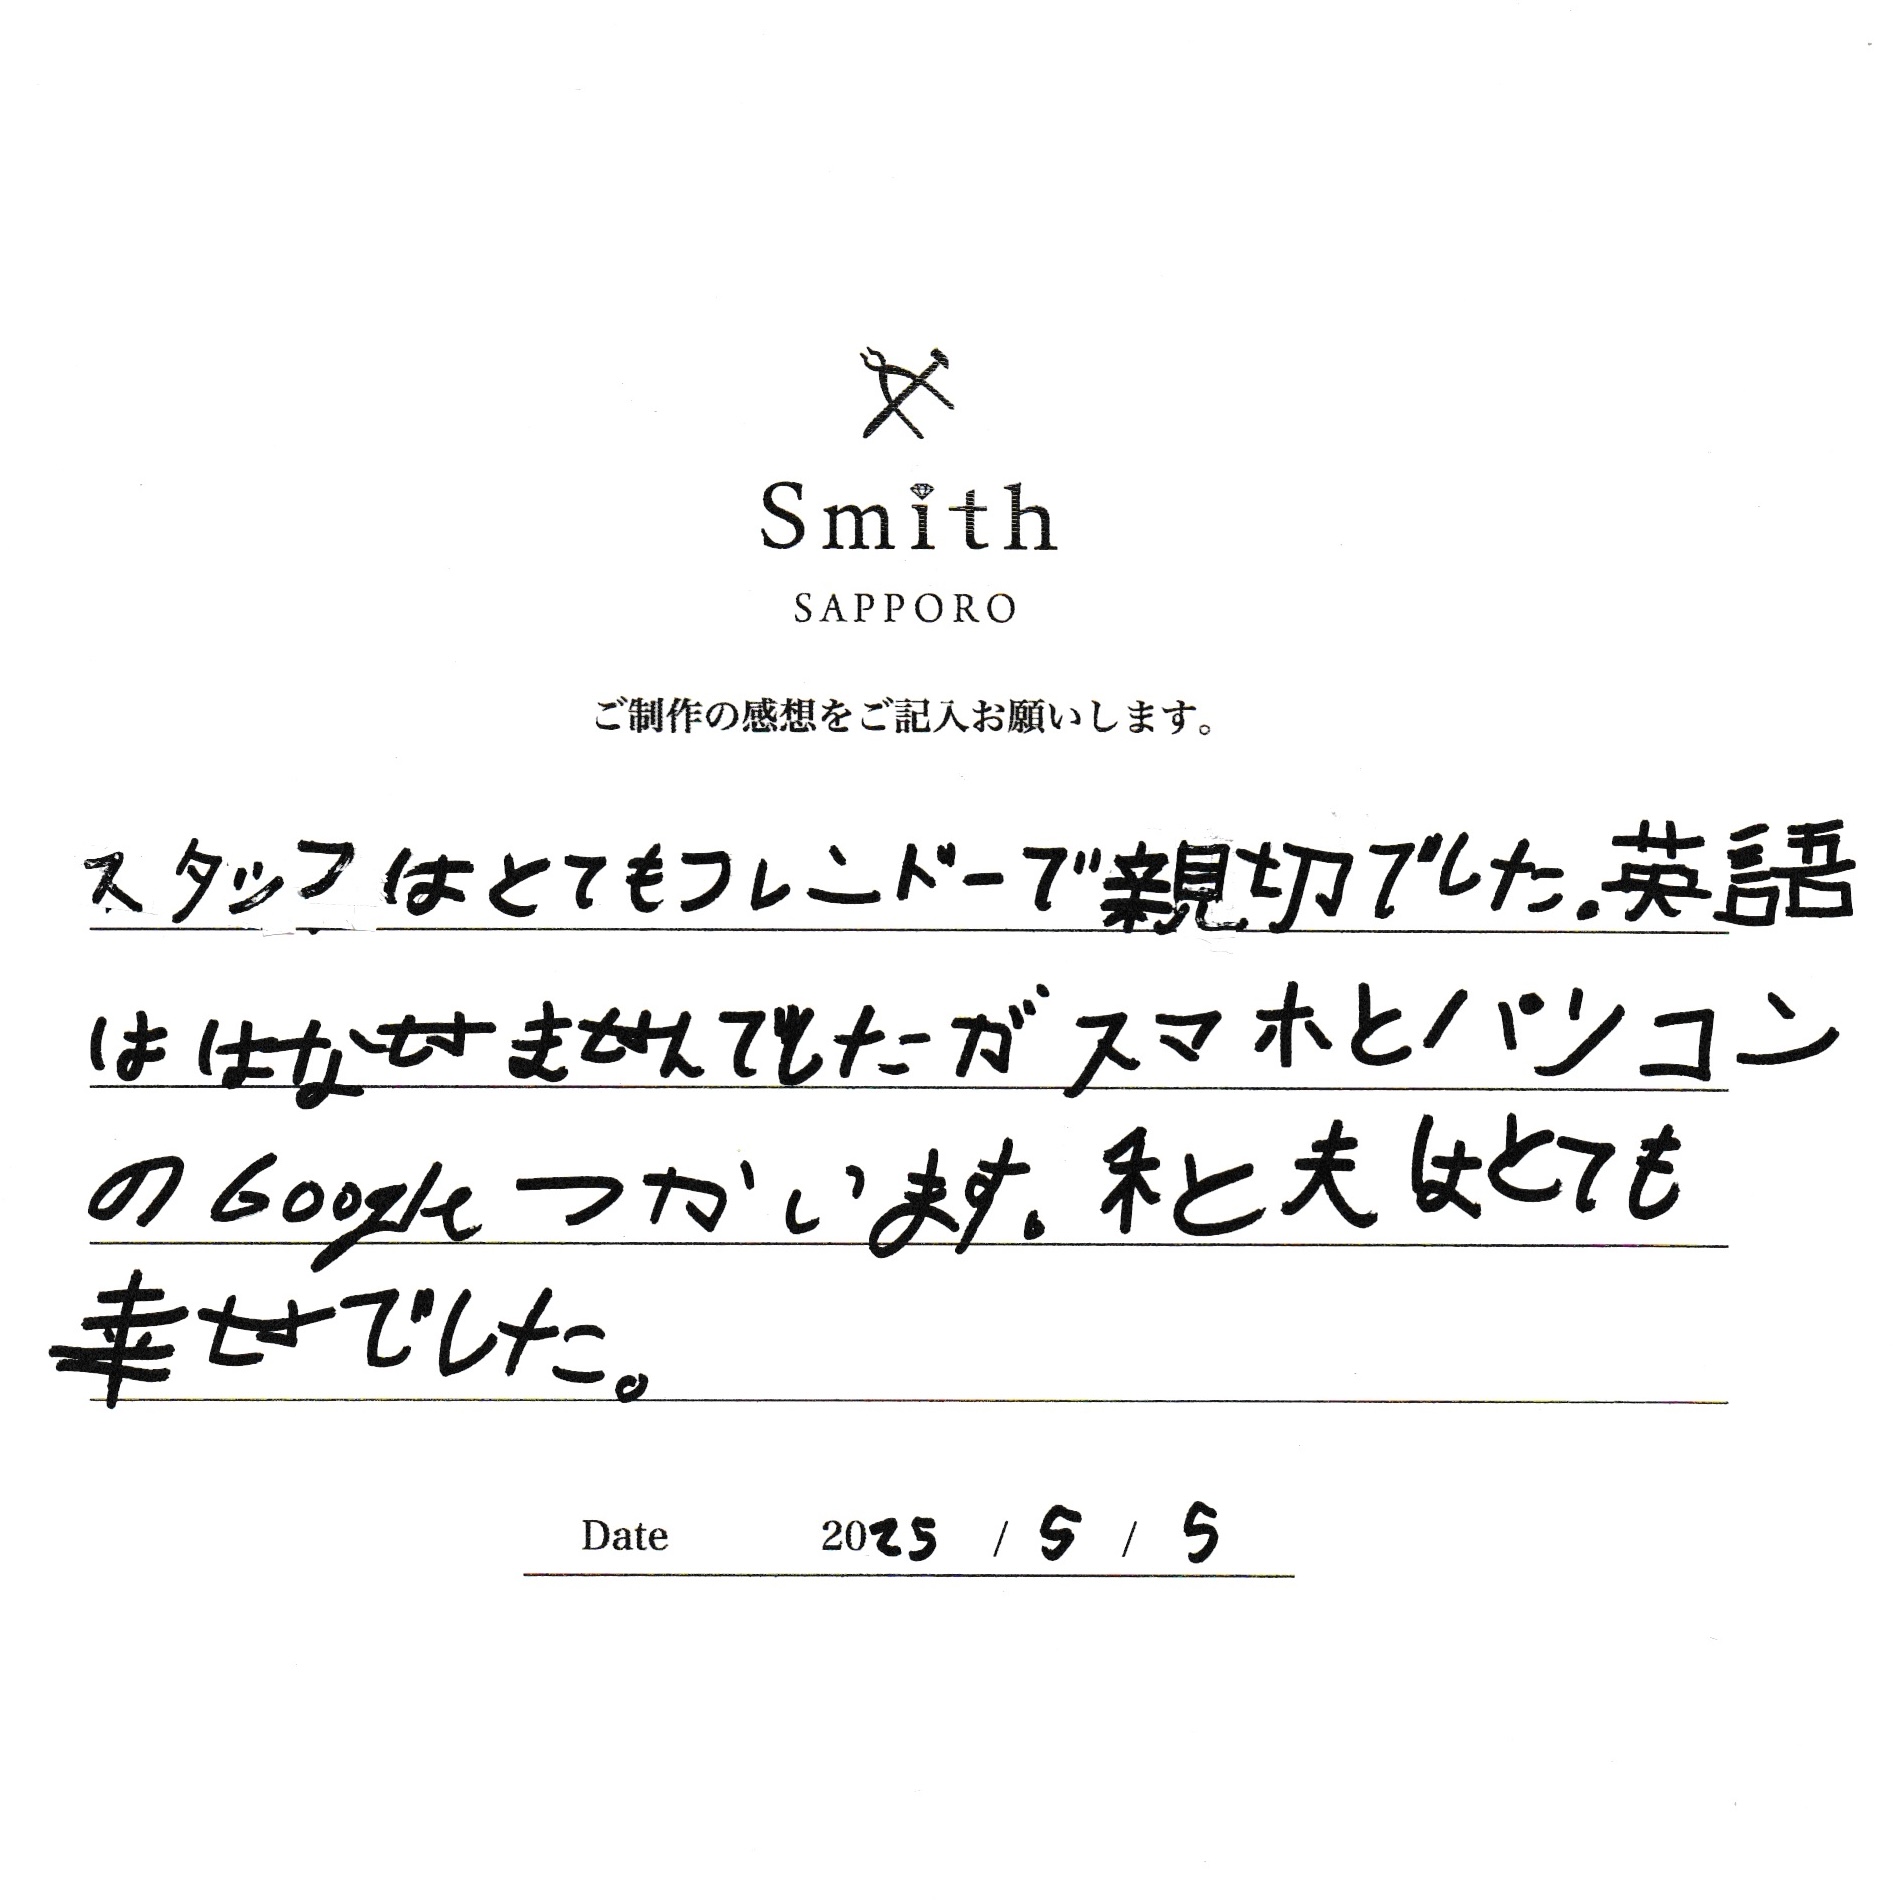 Smith
SAPPORO
ご制作の感想をご記入お願いします。
スタッフはとてもフレンドーで親切でした.英語
ははなせませんでしたガスマホとパソコン
のGoogleつかいます.私と夫はとても
幸せでした。
Date 2025 / 5 / 5